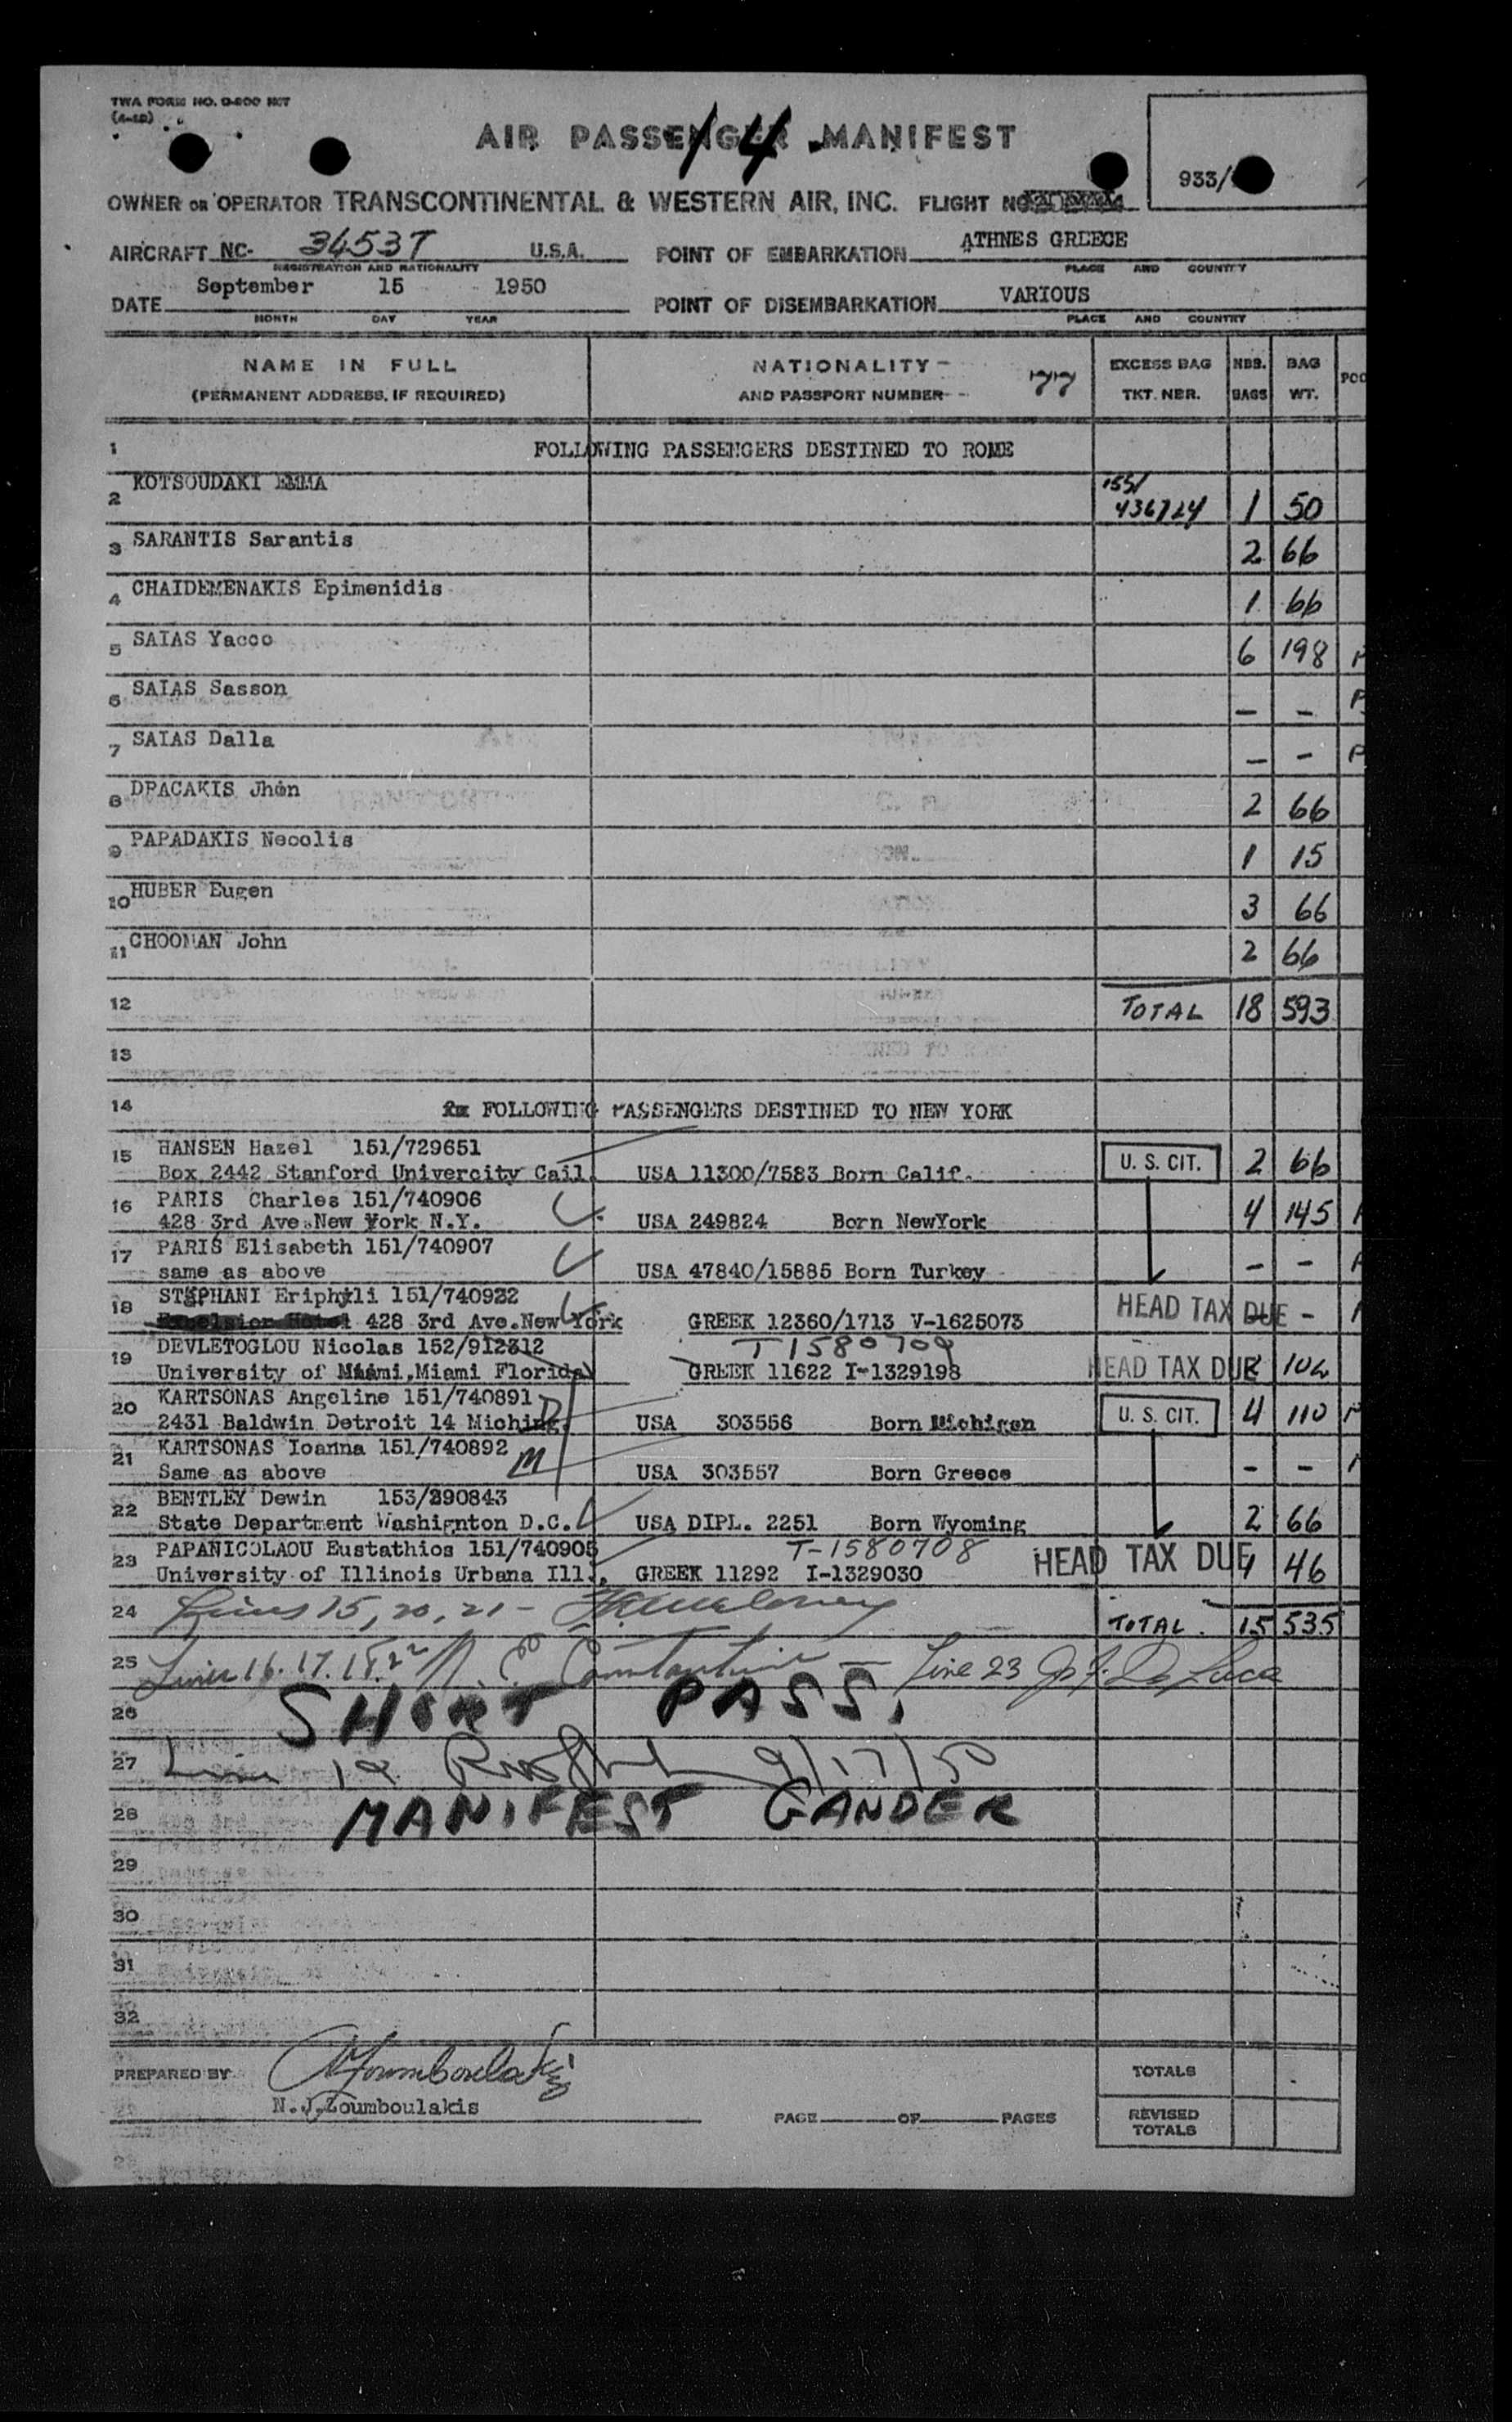 TWA FORM NO. O-200 INT
(4-48)
14
AIR PASSENGER MANIFEST
933/
OWNER OR OPERATOR TRANSCONTINENTAL & WESTERN AIR, INC. FLIGHT NO.
AIRCRAFT NC- 34537 U.S.A. POINT OF EMBARKATION ATHNES GREECE
REGISTRATION AND NATIONALITY PLACE AND COUNTRY
DATE September 15 1950 POINT OF DISEMBARKATION VARIOUS
MONTH DAY YEAR PLACE AND COUNTRY
NAME IN FULL NATIONALITY EXCESS BAG NBR. BAG
(PERMANENT ADDRESS, IF REQUIRED) AND PASSPORT NUMBER 77 TKT. NBR. BAGS WT.
1 FOLLOWING PASSENGERS DESTINED TO ROME
2 KOTSOUDAKI EMMA 155/ 436724 1 50
3 SARANTIS Sarantis 2 66
4 CHAIDEMENAKIS Epimenidis 1 66
5 SAIAS Yacco 6 198
6 SAIAS Sasson - -
7 SAIAS Dalla - -
8 DPACAKIS Jhon 2 66
9 PAPADAKIS Necolis 1 15
10 HUBER Eugen 3 66
11 CHOOMAN John 2 66
12 TOTAL 18 593
13
14 FOLLOWING PASSENGERS DESTINED TO NEW YORK
15 HANSEN Hazel 151/729651
Box 2442 Stanford Univercity Cail. USA 11300/7583 Born Calif. U. S. CIT. 2 66
16 PARIS Charles 151/740906
428 3rd Ave.New York N.Y. USA 249824 Born NewYork 4 145
17 PARIS Elisabeth 151/740907
same as above USA 47840/15885 Born Turkey - -
18 STEPHANI Eriphyli 151/740922
428 3rd Ave.New York GREEK 12360/1713 V-1625073 HEAD TAX DUE -
19 DEVLETOGLOU Nicolas 152/912312 T1580709
University of Miami,Miami Florida GREEK 11622 I-1329198 HEAD TAX DUE 104
20 KARTSONAS Angeline 151/740891
2431 Baldwin Detroit 14 Miching. USA 303556 Born Michigen U. S. CIT. 4 110
21 KARTSONAS Ioanna 151/740892 M
Same as above USA 303557 Born Greece - -
22 BENTLEY Dewin 153/290843
State Department Washignton D.C. USA DIPL. 2251 Born Wyoming 2 66
23 PAPANICOLAOU Eustathios 151/740905 T-1580708
University of Illinois Urbana Ill. GREEK 11292 I-1329030 HEAD TAX DUE 46
24 Lines 15, 20, 21 - TOTAL 15 535
25 Lines 16. 17. 18. 22 Constantine - Line 23 De Luca
26 SHORT PASS.
27 Line 19 9/17/50
28 MANIFEST GANDER
29
30
31
32
PREPARED BY
N.J.Zoumboulakis
PAGE OF PAGES
TOTALS
REVISED TOTALS